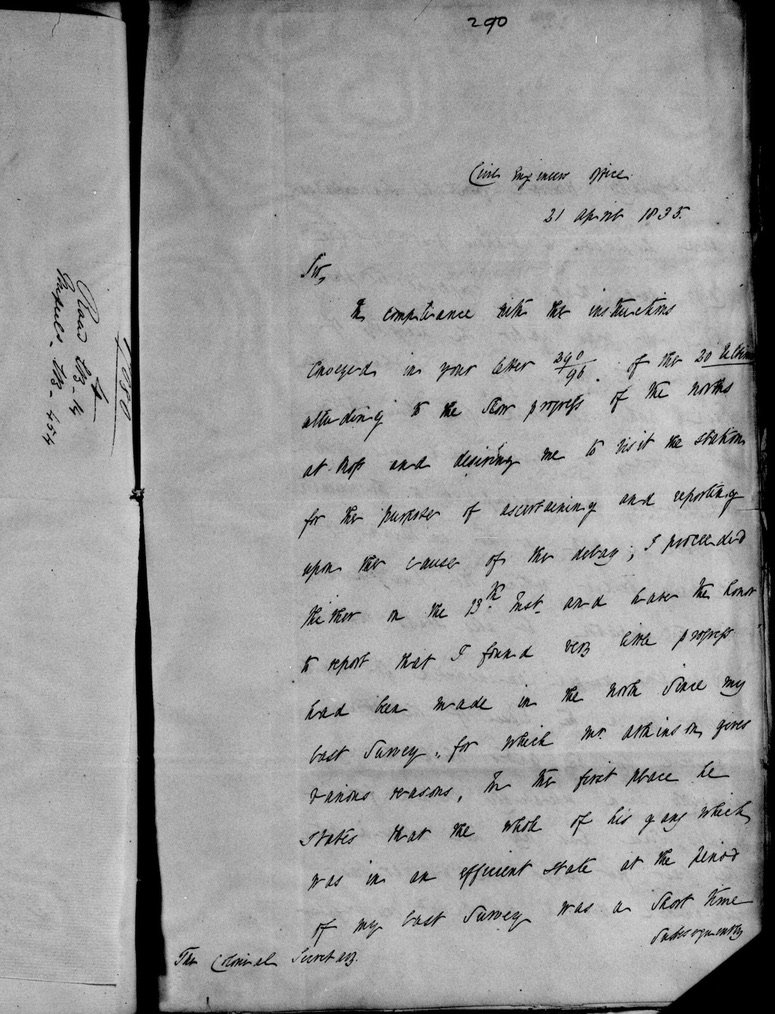 290
Civil Engineers Office
21 April 1835.
Sir,
In compliance with the instructions
conveyed in your letter 290/96. of the 20 Ultimo
alluding to the slow progress of the works
at Ross and desiring me to visit the station
for the purpose of ascertaining and reporting
upon the cause of the delay; I proceeded
thither on the 13th Inst. and have the honor
to report that I found very little progress
had been made in the work since my
last Survey, for which Mr Atkinson gives
various reasons, In the first place he
states that the whole of his gang which
was in an efficient state at the period
of my last Survey was a short time
subsequently
The Colonial Secretary.